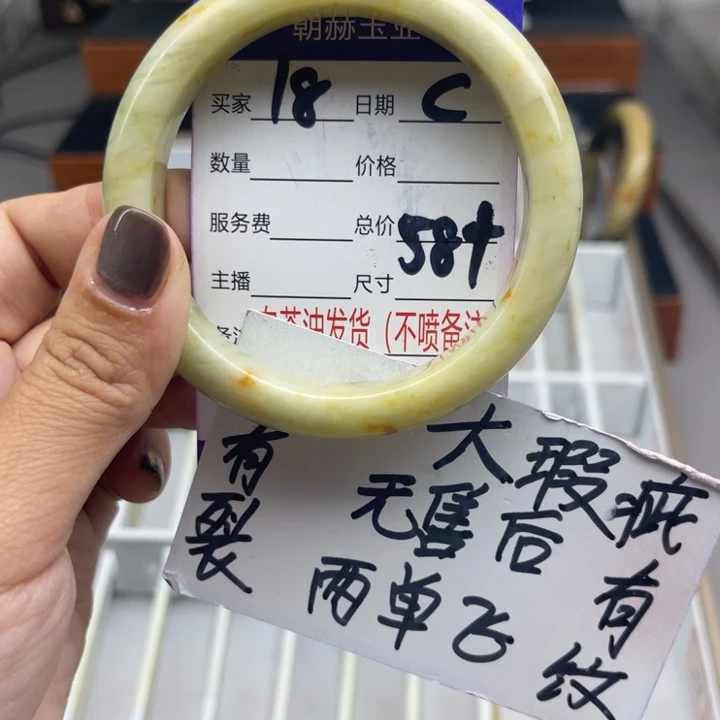 朝赫玉业
买家 18 日期 C
数量 价格
服务费 总价
584
主播 尺寸
备注 白茶油发货（不喷备注
大瑕疵
有裂
无售后
两单飞
有纹